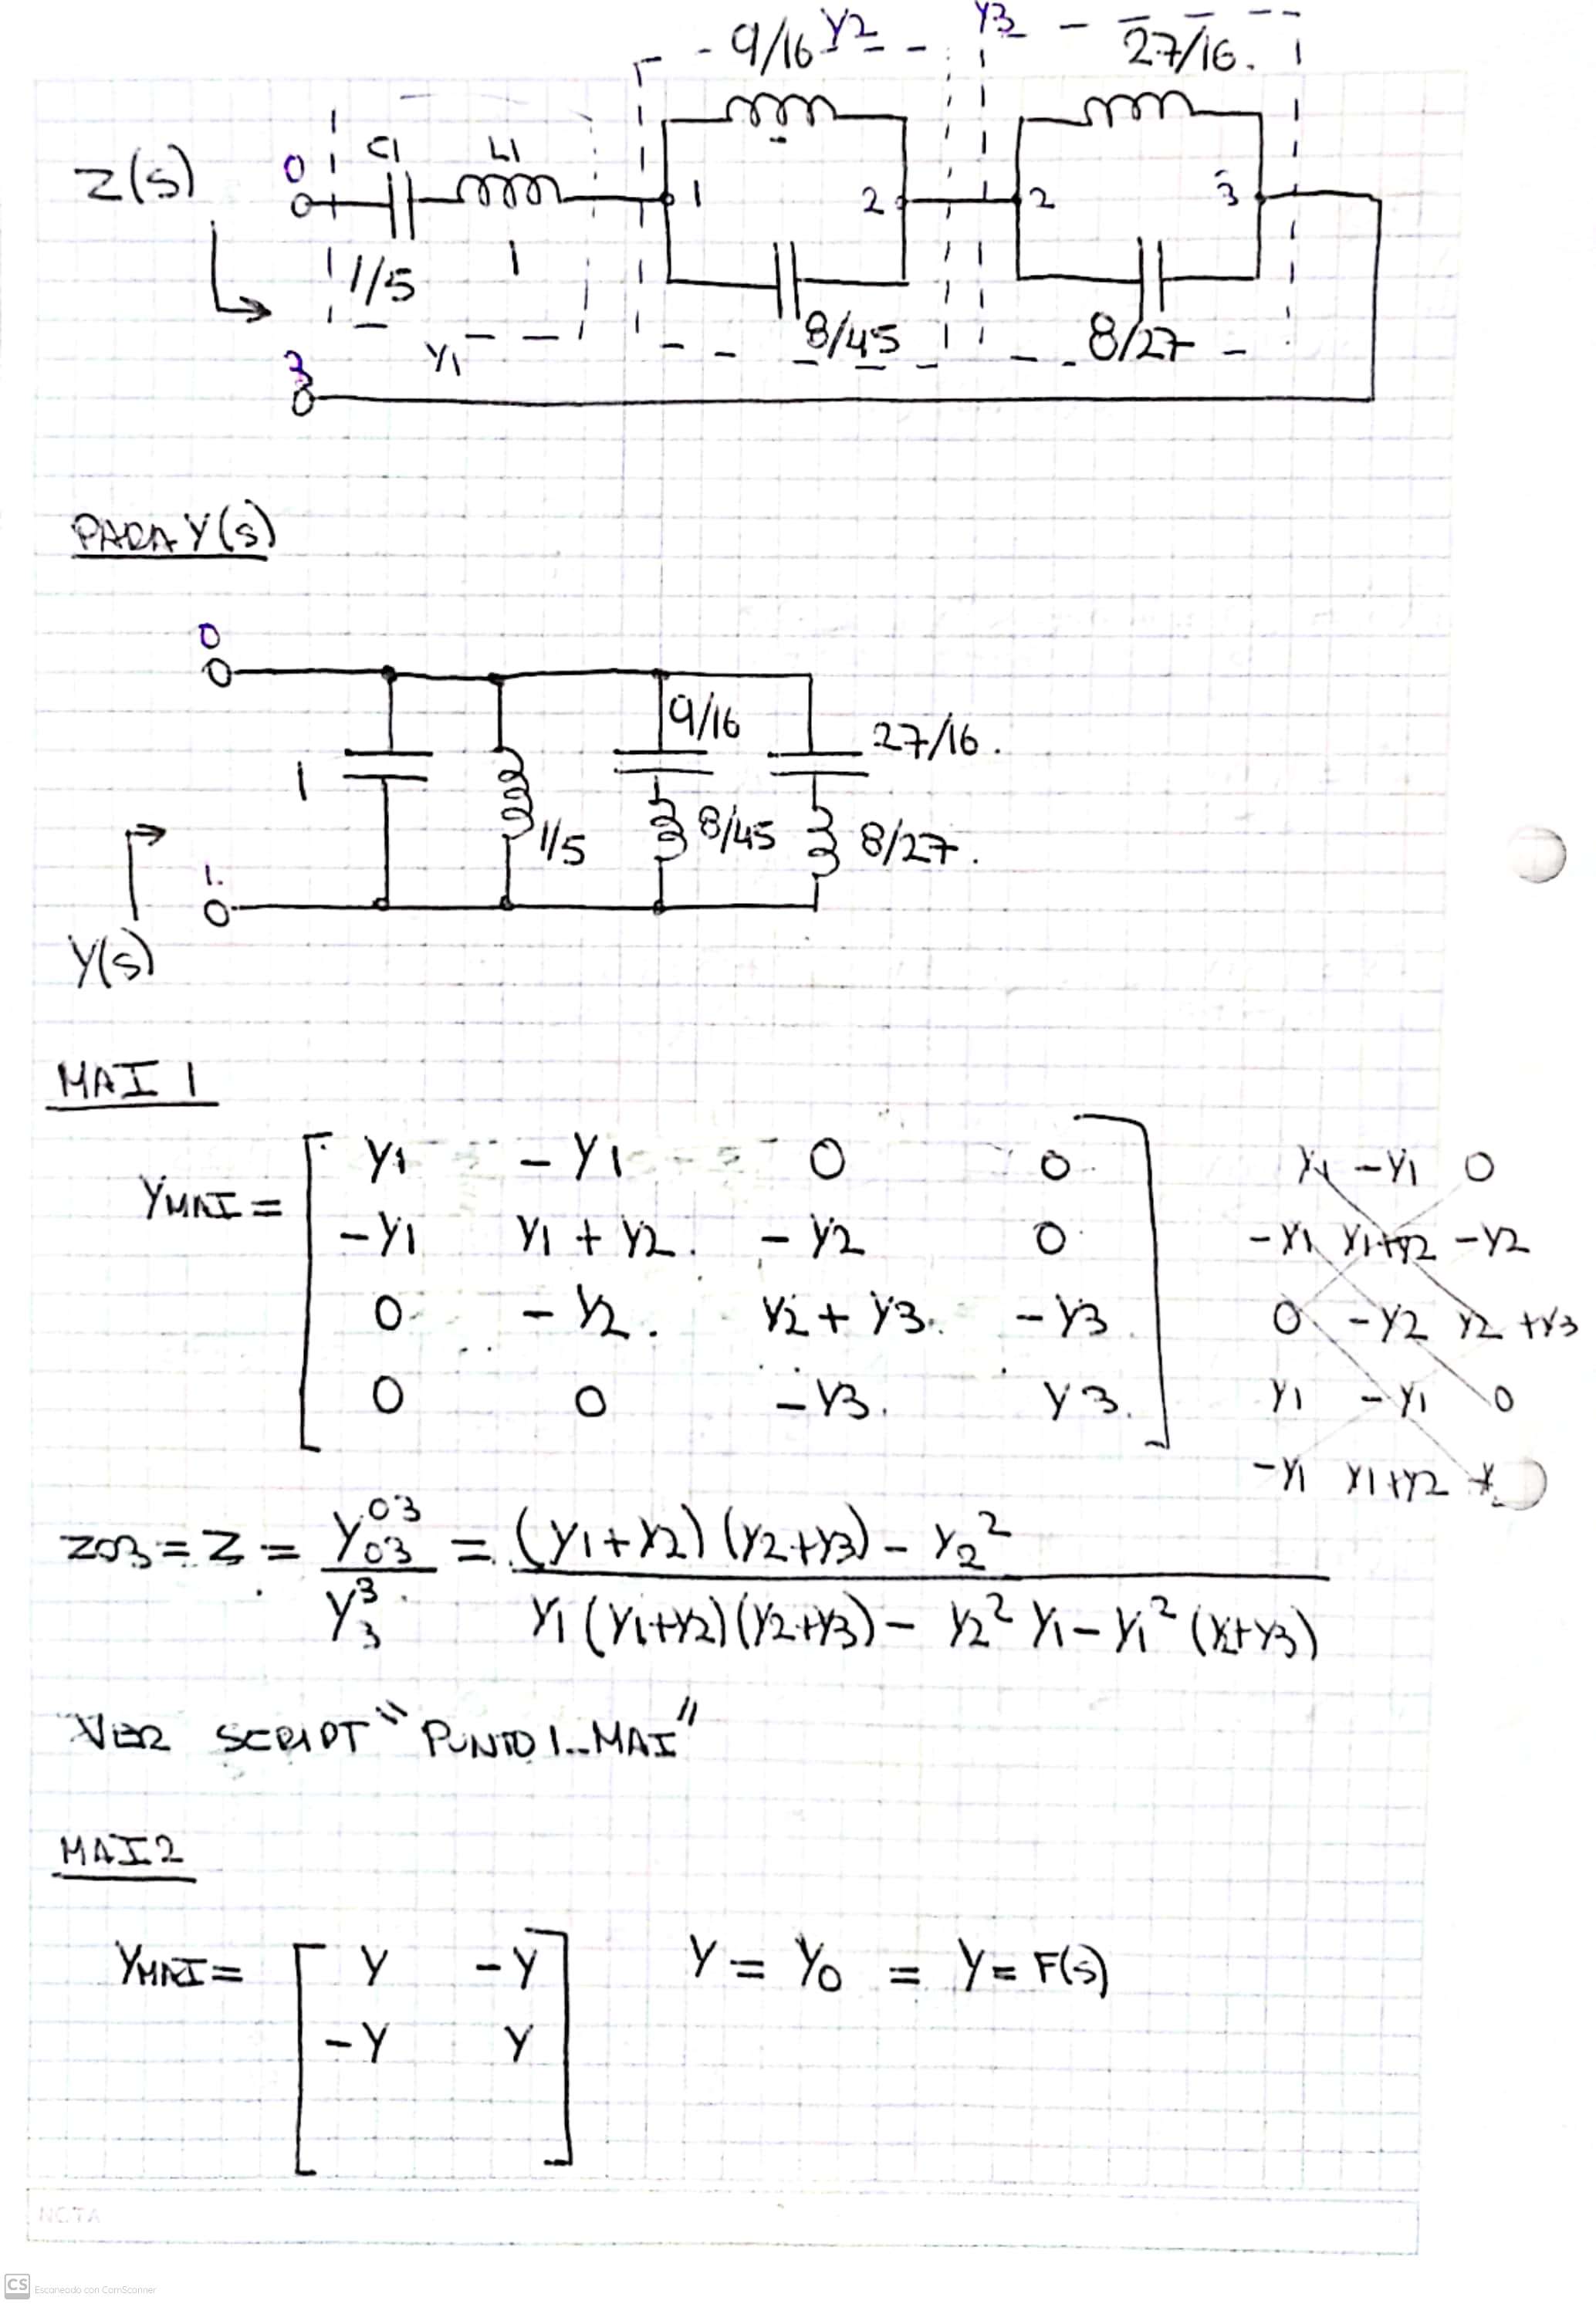 9/16 Y2 Y3 27/16.
Z(s) 0 C1 L1 1 2 2 3
1/5 1 8/45 8/27
3 Y1
PARA Y(s)
0
9/16 27/16.
1 1/5 8/45 8/27.
1.
Y(s)
MAI 1
YMAI = [ Y1 -Y1 0 0
-Y1 Y1 + Y2. -Y2 0
0 -Y2. Y2 + Y3. -Y3
0 0 -Y3. Y3. ]
Y1 -Y1 0
-Y1 Y1+Y2 -Y2
0 -Y2 Y2 +Y3
Y1 -Y1 0
-Y1 Y1+Y2
Z03 = Z = Y03^03 / Y3^3 = (Y1+Y2)(Y2+Y3) - Y2² / Y1(Y1+Y2)(Y2+Y3) - Y2² Y1 - Y1² (Y2+Y3)
VER SCRIPT "PUNTO1_MAI"
MAI2
YMAI = [ Y -Y
-Y Y ] Y = Y0 = Y = F(s)
NOTA
CS Escaneado con CamScanner